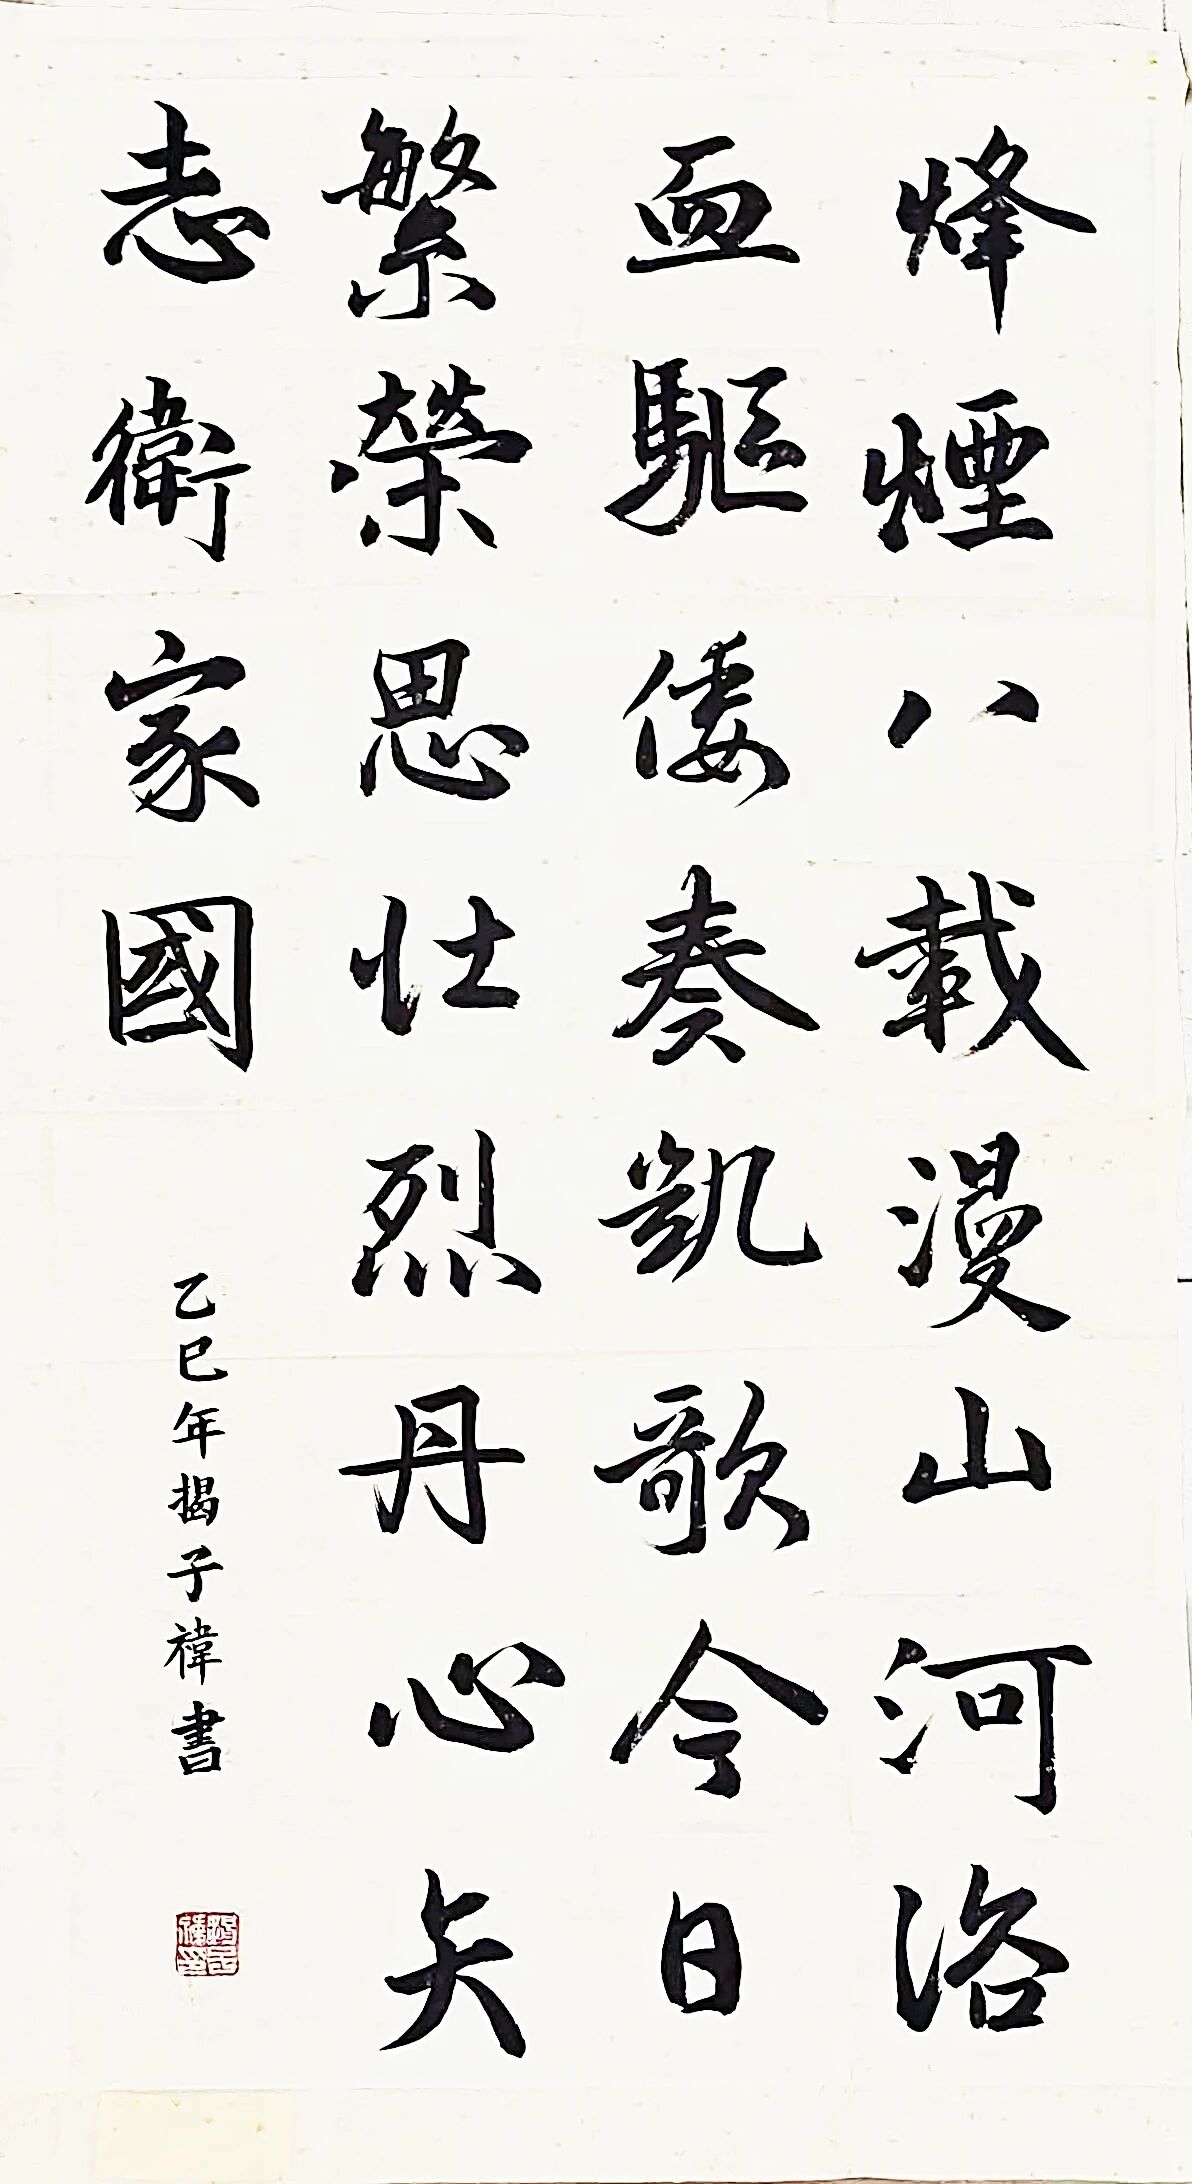 烽煙八載漫山河浴
血驅倭奏凱歌今日
繁榮思壯烈丹心矢
志衛家國
乙巳年揭子禕書
揭子禕印